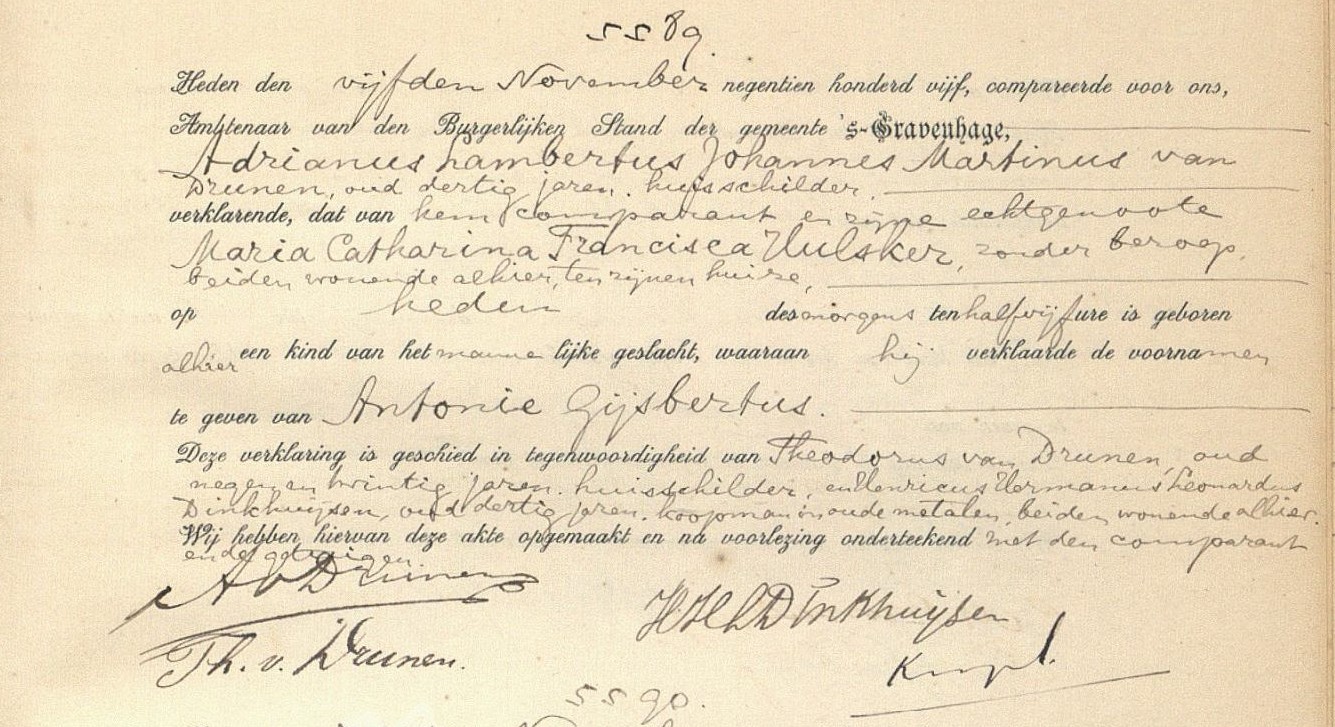 5589.
Heden den vijfden November negentien honderd vijf, compareerde voor ons,
Ambtenaar van den Burgerlijken Stand der gemeente 's-Gravenhage,
Adrianus Lambertus Johannes Martinus van
Drunen, oud dertig jaren, huisschilder,
verklarende, dat van hem comparant en zijne echtgenoote
Maria Catharina Francisca Hulsker, zonder beroep,
beiden wonende alhier, ten zijnen huize,
op heden des morgens ten half vijf ure is geboren
alhier een kind van het mannelijke geslacht, waaraan hij verklaarde de voornamen
te geven van Antonie Gijsbertus.
Deze verklaring is geschied in tegenwoordigheid van Theodorus van Drunen, oud
negen en twintig jaren, huisschilder, en Henricus Hermanus Leonardus
Dinkhuijsen, oud dertig jaren, koopman in oude metalen, beiden wonende alhier.
Wij hebben hiervan deze akte opgemaakt en na voorlezing onderteekend met den comparant
en de getuigen.
A v Drunen
H H L Dinkhuijsen
Th. v. Drunen.
5590.